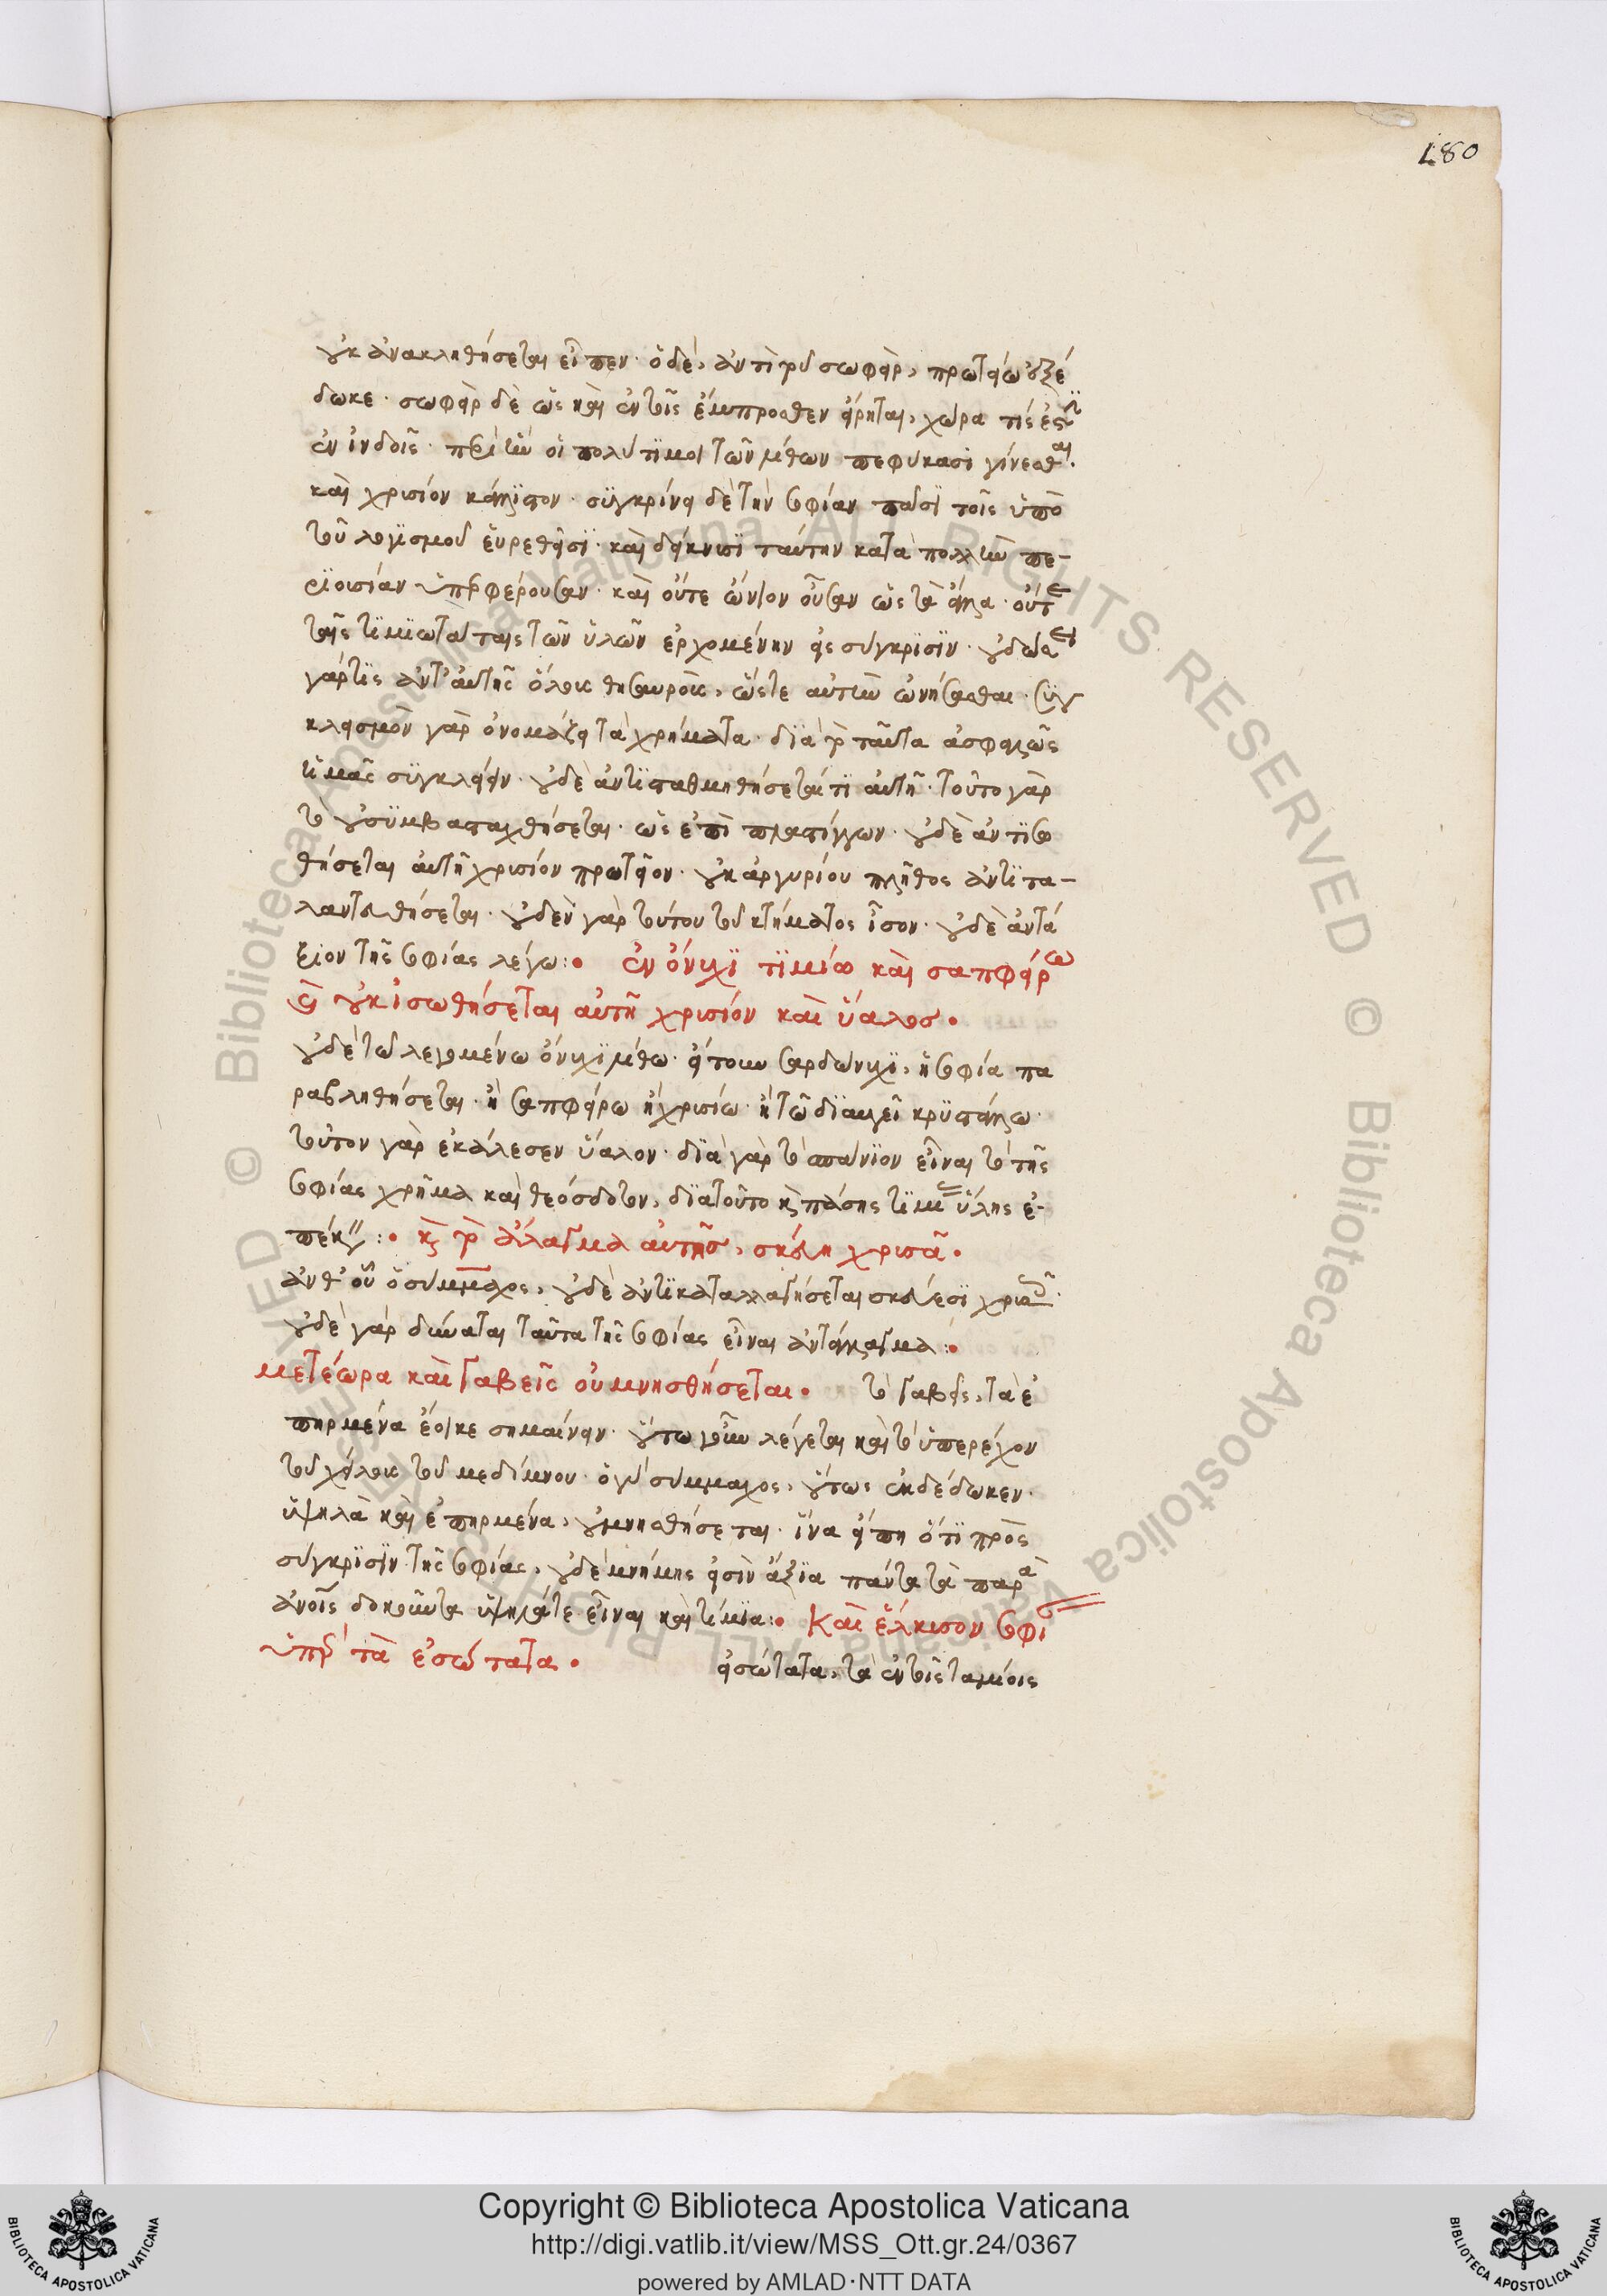 180
οὐκ ἀνακληθήσεται εἶπεν· ὁ δὲ, ἀντὶ τοῦ σωφεὶρ, πρωτείω ἐξέ
δωκε· σωφεὶρ δὲ ὡς καὶ ἐν τοῖς ἔμπροσθεν εἴρηται, χώρα τίς ἐστιν
ἐν ἰνδοῖς· περὶ ἣν οἱ πολυτίμοι τῶν λίθων πεφύκασι γίνεσθαι·
καὶ χρυσίον κάλλιστον· συγκρίνει δὲ τὴν σοφίαν πᾶσι τοῖς ὑπὸ
τοῦ λογισμοῦ εὑρεθεῖσι· καὶ δείκνυσι ταύτην κατὰ πολλὴν πε-
ριουσίαν ὑπερφέρουσαν· καὶ οὔτε ὤνιον οὖσαν ὡς τὰ ἄλλα· οὔτε
ταῖς τιμιωτάταις τῶν ὑλῶν ἐρχομένην εἰς σύγκρισιν· οὐ δώσει
γάρ τις ἀντ' αὐτῆς ὅλους θησαυροὺς, ὥστε αὐτὴν ὠνήσασθαι· συγ
κλεισμὸν γὰρ ὀνομάζει τὰ χρήματα· διὰ τὸ ταῦτα ἀσφαλῶς
ἡμᾶς συγκλείειν· οὐδὲ ἀντισταθμηθήσεταί τι αὐτῇ· τοῦτο γὰρ
τὸ οὐ συμβασταχθήσεται· ὡς ἐπὶ πλαστίγγων· οὐδὲ ἀντισω
θήσεται αὐτῇ χρυσίον πρωτεῖον· οὐκ ἀργυρίου πλῆθος ἀντιτα-
λαντευθήσεται· οὐδὲν γὰρ τούτου τοῦ κτήματος ἴσον· οὐδὲ ἀντά
ξιον τῆς σοφίας λέγω:· ἐν ὄνυχι τιμίω καὶ σαπφείρω
οὐκ ἰσωθήσεται αὐτῇ χρυσίον καὶ ὕαλος·
οὐδὲ τῶ λεγομένω ὄνυχι λίθω· ἤτοι σαρδώνυχι, ἡ σοφία πα
ραβληθήσεται· ἢ σαπφείρω ἢ χρυσίω· ἢ τῶ διαυγεῖ κρυστάλλω·
τοῦτον γὰρ ἐκάλεσεν ὕαλον· διὰ γὰρ τὸ σπάνιον εἶναι τὸ τῆς
σοφίας χρῆμα καὶ θεόσδοτον, διατοῦτο καὶ πάσης τιμίας ὕλης ἐ-
πέκεινα:· καὶ τὸ ἄλλαγμα αὐτῆς, σκεύη χρυσᾶ·
ἀνθ' οὗ ὁ σύμμαχος, οὐδὲ ἀντικαταλλαγήσεται σκεύεσι χρυσοῦ·
οὐδὲ γὰρ δύναται ταῦτα τῆς σοφίας εἶναι ἀντάλλαγμα:·
μετέωρα καὶ γαβεῖς οὐ μνησθήσεται· τὸ γαβεῖς, τὰ ἐ
πηρμένα ἔοικε σημαίνειν· οὕτω γοῦν λέγεται καὶ τὸ ὑπερέχον
τοῦ χείλους τοῦ μεδίμνου· ὁ γοῦν σύμμαχος, οὕτως ἐκδέδωκεν·
ὑψηλὰ καὶ ἐπηρμένα, οὐ μνησθήσεται· ἵνα εἴπη ὅτι πρὸς
σύγκρισιν τῆς σοφίας, οὐδὲ μνήμης εἰσὶν ἄξια πάντα τὰ παρὰ
ἀνοις δοκοῦντα ὑψηλά τε εἶναι καὶ τίμια:· Καὶ ἕλκυσον σοφί
ὑπὲρ τὰ ἐσώτατα· ἐσώτατα, τὰ ἐν τοῖς ταμείοις
Copyright © Biblioteca Apostolica Vaticana
http://digi.vatlib.it/view/MSS_Ott.gr.24/0367
powered by AMLAD·NTT DATA